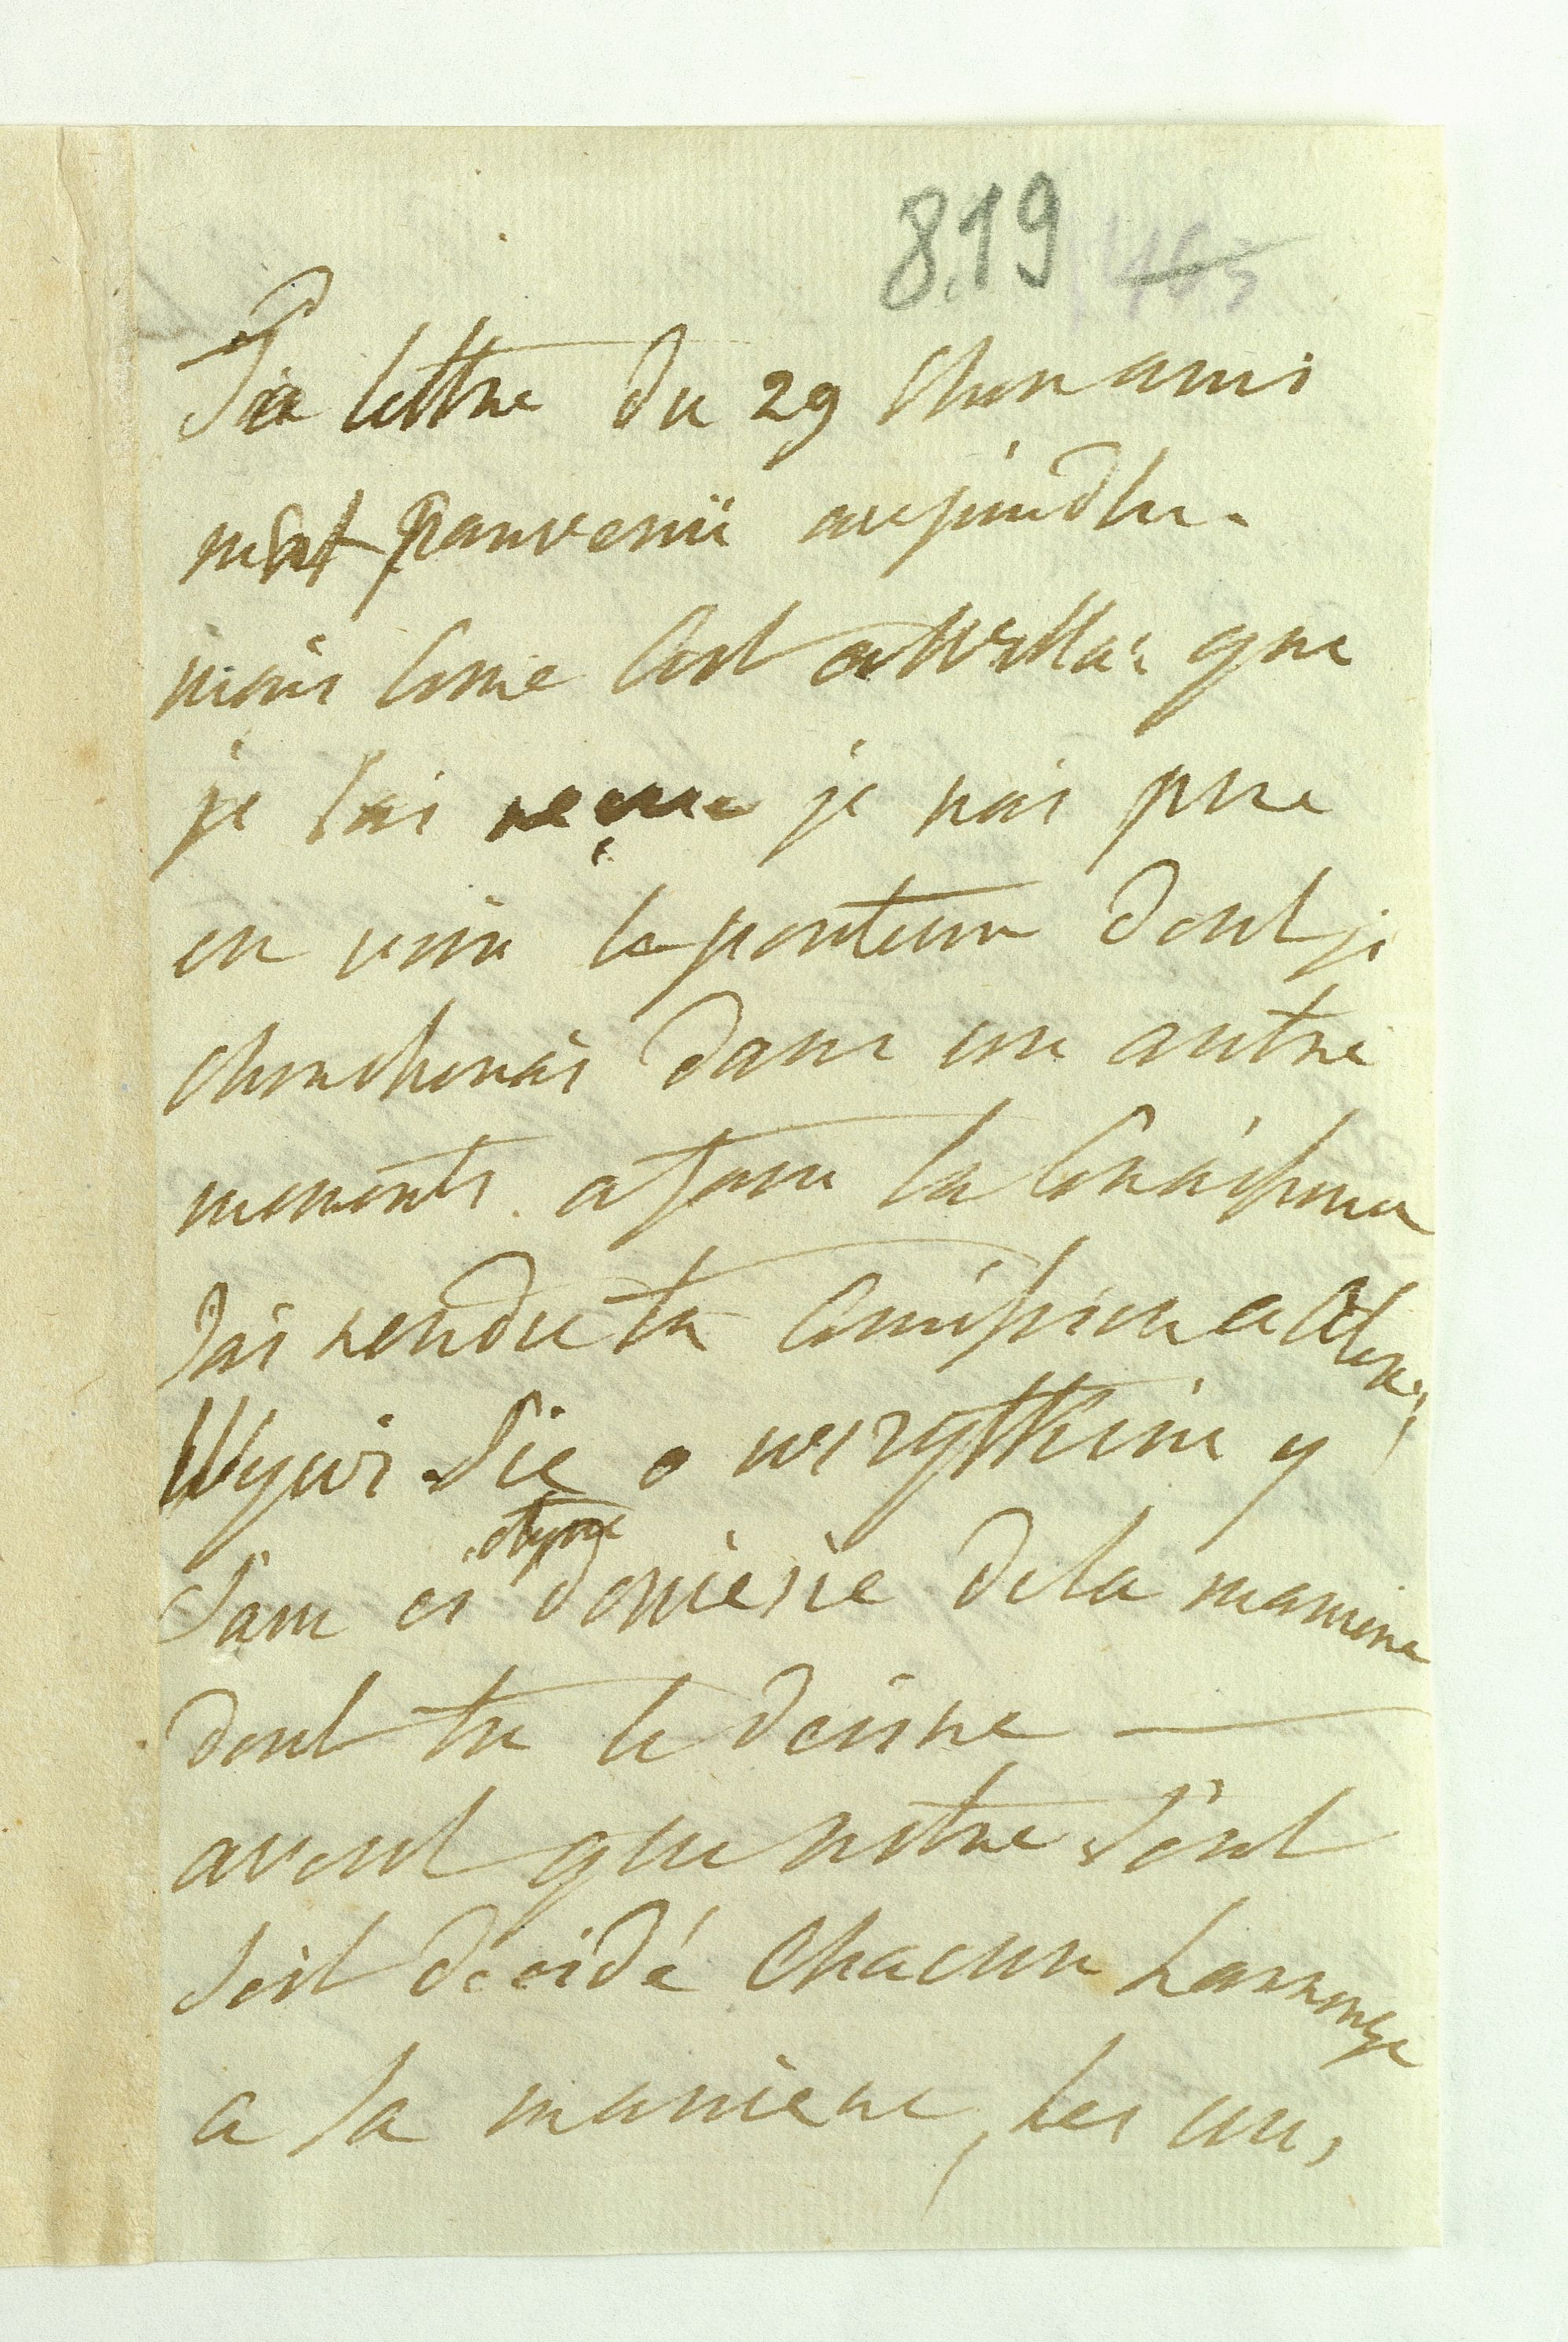 819 465
Ta lettre du 29 cher ami
mest parvenü aujourdhu.
mais come cest a Wilka que
je lai reçue je nai pue
en voir le porteur dont je
chercherais dans un autre
moments a faire la Conaissance
Jai rendu ta Comission a Alexe,
Wywi Sie o wszythim y
Sam ci otym doniesie de la maniere
dont tu le desire —
avent que notre Sort
Soit décidé Chacun Larrenge
a Sa maniere, les uns,